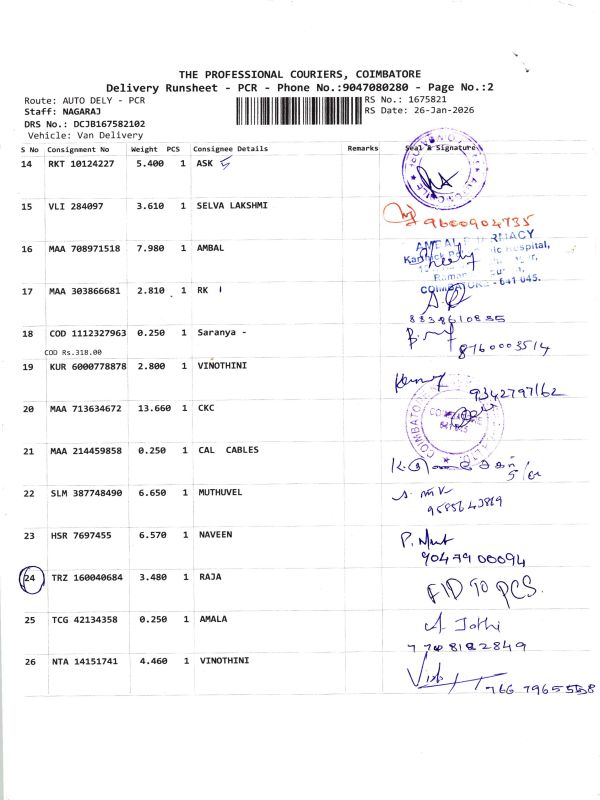 THE PROFESSIONAL COURIERS, COIMBATORE
Delivery Runsheet - PCR - Phone No.:9047080280 - Page No.:2
Route: AUTO DELY - PCR RS No.: 1675821
Staff: NAGARAJ RS Date: 26-Jan-2026
DRS No.: DCJB167582102
Vehicle: Van Delivery
S No Consignment No Weight PCS Consignee Details Remarks Seal & Signature
14 RKT 10124227 5.400 1 ASK
15 VLI 284097 3.610 1 SELVA LAKSHMI
9600904735
16 MAA 708971518 7.980 1 AMBAL
17 MAA 303866681 2.810 1 RK
COIMBATORE - 641 045.
8838610885
18 COD 1112327963 0.250 1 Saranya -
8760003514
COD Rs.318.00
19 KUR 6000778878 2.800 1 VINOTHINI
9342797162
20 MAA 713634672 13.660 1 CKC
21 MAA 214459858 0.250 1 CAL CABLES
22 SLM 387748490 6.650 1 MUTHUVEL
23 HSR 7697455 6.570 1 NAVEEN
9047900094
24 TRZ 160040684 3.480 1 RAJA
FID TO PCS.
25 TCG 42134358 0.250 1 AMALA
A Jothi
26 NTA 14151741 4.460 1 VINOTHINI